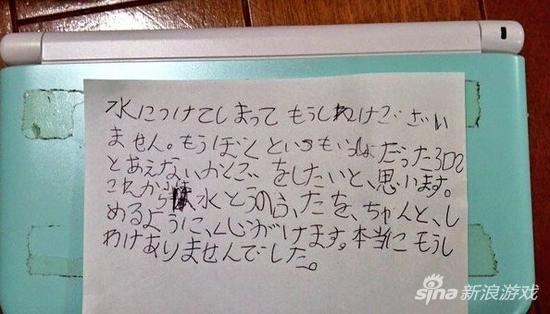 水につけてしまって もうしわけござい
ません。もうぼくといつもいっしょだった3DS
とあえないかくごをしたいと、思います。
これから水とうのふたを、ちゃんと、し
めるように、心がけます。本当にもうし
わけありませんでした。
sina新浪游戏